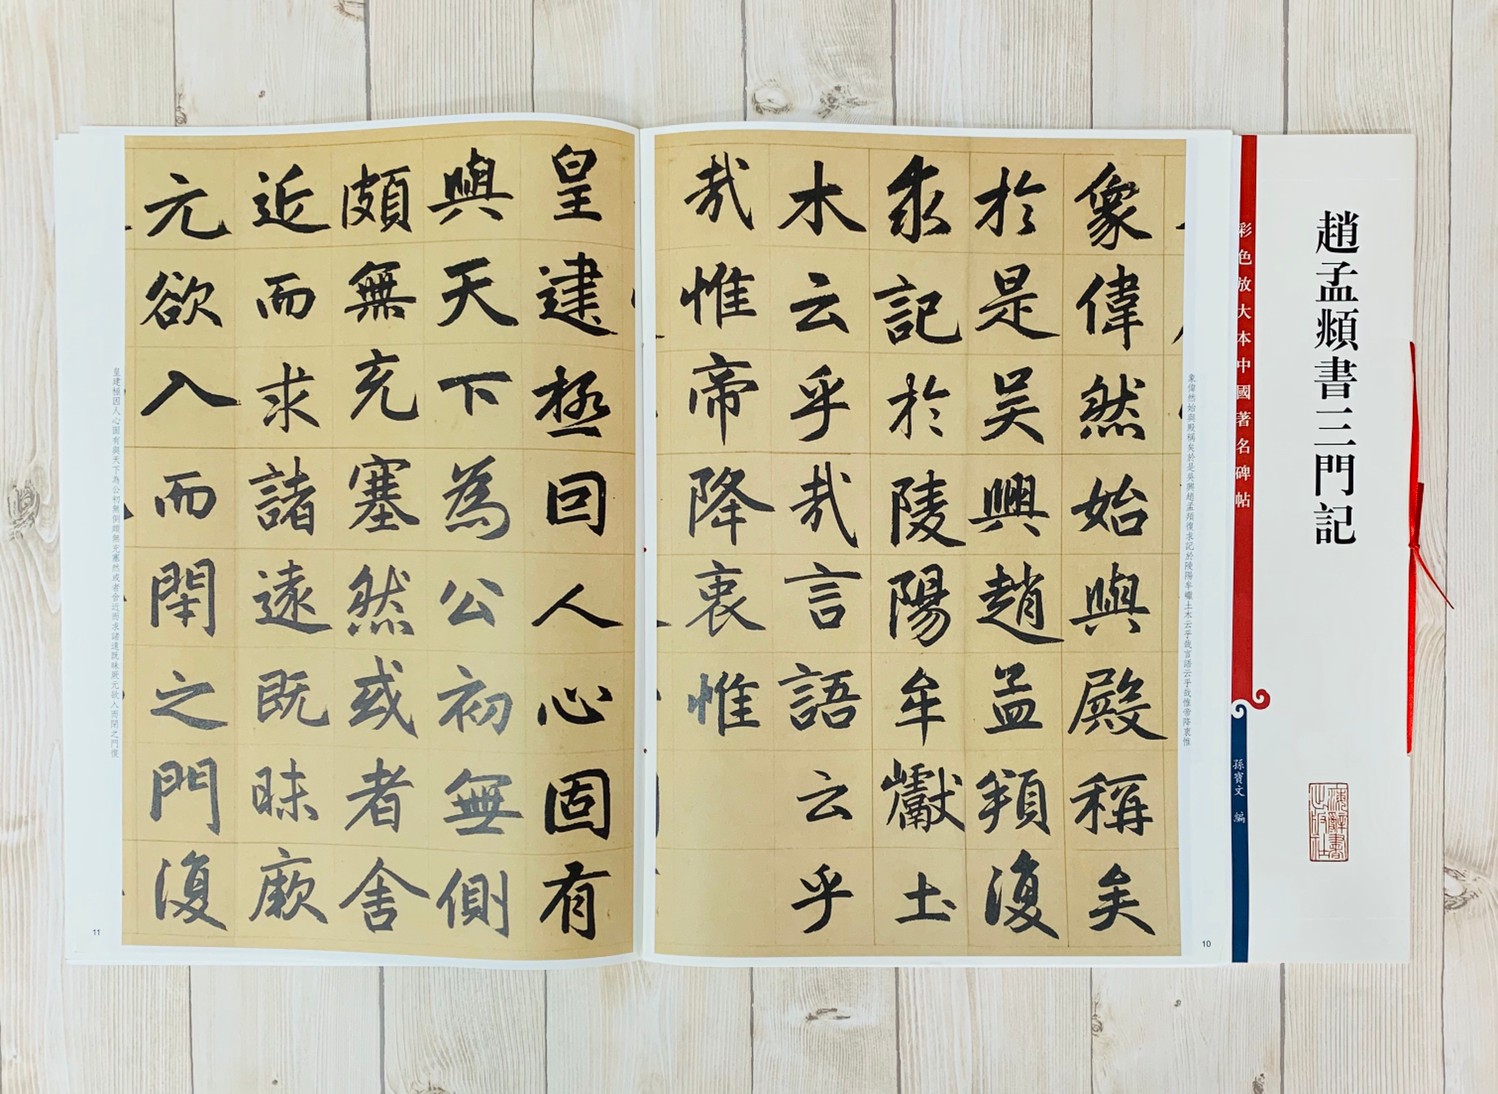 趙孟頫書三門記
彩色放大本中國著名碑帖
孫寶文 編
象偉然始與殿稱矣於是吳興趙孟頫復求記於陵陽牟巘土木云乎哉言語云乎哉惟帝降衷惟
象偉然始與殿稱矣
於是吳興趙孟頫復
求記於陵陽牟巘土
木云乎哉言語云乎
哉惟帝降衷惟
10
皇建極因人心固有
與天下為公初無側
頗無充塞然或者舍
近而求諸遠既昧厥
元欲入而閉之門復
皇建極因人心固有與天下為公初無側頗無充塞然或者舍近而求諸遠既昧厥元欲入而閉之門復
11